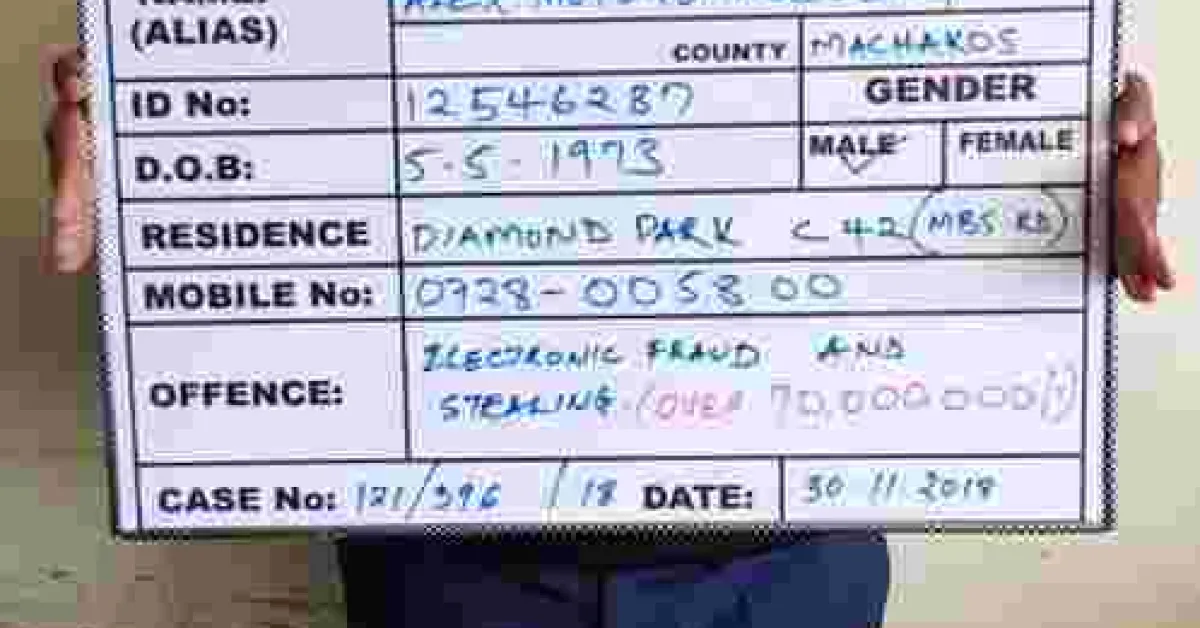 (ALIAS)
COUNTY MACHAKOS
ID No: 12546287 GENDER
D.O.B: 5-5-1973 MALE FEMALE
RESIDENCE DIAMOND PARK C 42 (MBS RD)
MOBILE No: 0728-005800
OFFENCE: ELECTRONIC FRAUD AND
STEALING (OVER 70,000 000/)
CASE No: 121/396/18 DATE: 30.11.2018